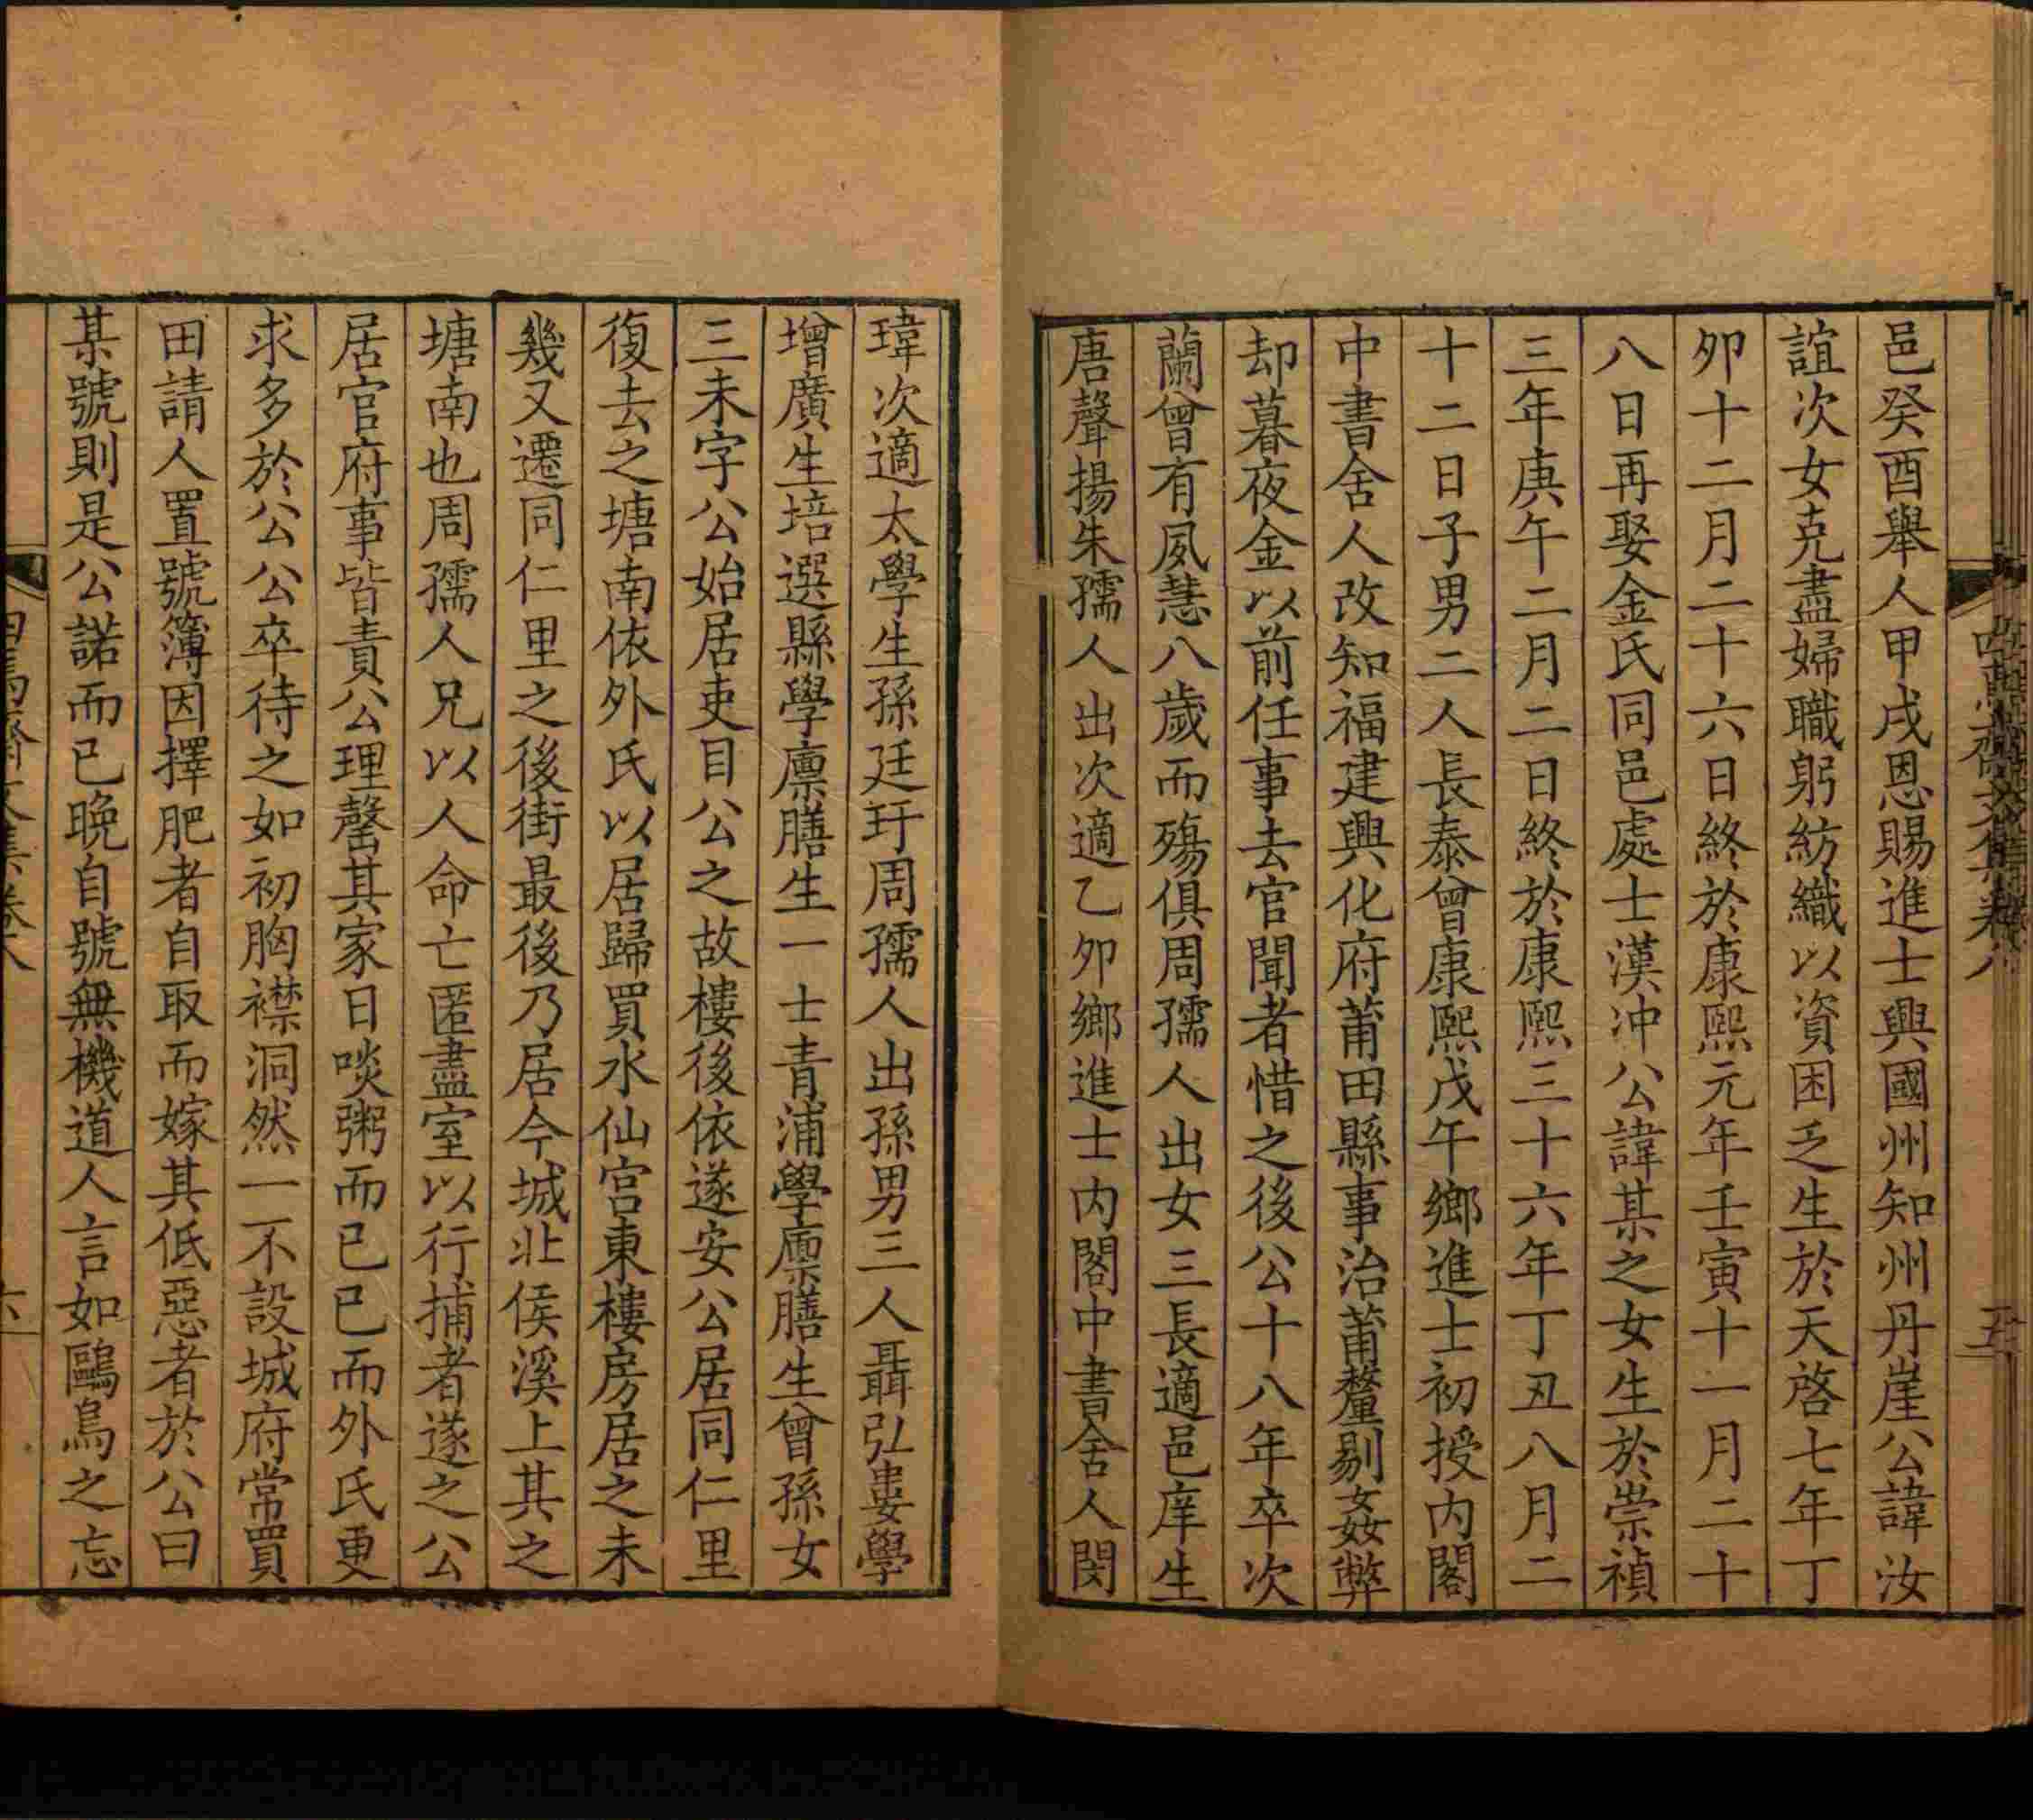 邑癸酉舉人甲戌恩賜進士興國州知州丹崖公諱汝
誼次女克盡婦職躬紡織以資困乏生於天啓七年丁
夘十二月二十六日終於康熙元年壬寅十一月二十
八日再娶金氏同邑處士漢冲公諱某之女生於崇禎
三年庚午二月二日終於康熙三十六年丁丑八月二
十二日子男二人長泰曾康熙戊午鄉進士初授内閣
中書舍人改知福建興化府莆田縣事治莆釐剔姦弊
却暮夜金以前任事去官聞者惜之後公十八年卒次
蘭曾有夙慧八歲而殤俱周孺人出女三長適邑庠生
唐聲揚朱孺人出次適乙夘鄉進士内閣中書舍人閔
瑋次適太學生孫廷玗周孺人出孫男三人聶弘婁學
增廣生培選縣學廩膳生一士青浦學廩膳生曾孫女
三未字公始居吏目公之故樓後依遂安公居同仁里
復去之塘南依外氏以居歸買水仙宫東樓房居之未
幾又遷同仁里之後街最後乃居今城北侯溪上其之
塘南也周孺人兄以人命亡匿盡室以行捕者遂之公
居官府事皆責公理罄其家日啖粥而已已而外氏更
求多於公公卒待之如初胸襟洞然一不設城府常買
田請人置號簿因擇肥者自取而嫁其低惡者於公曰
某號則是公諾而已晚自號無機道人言如鷗鳥之忘
五
六